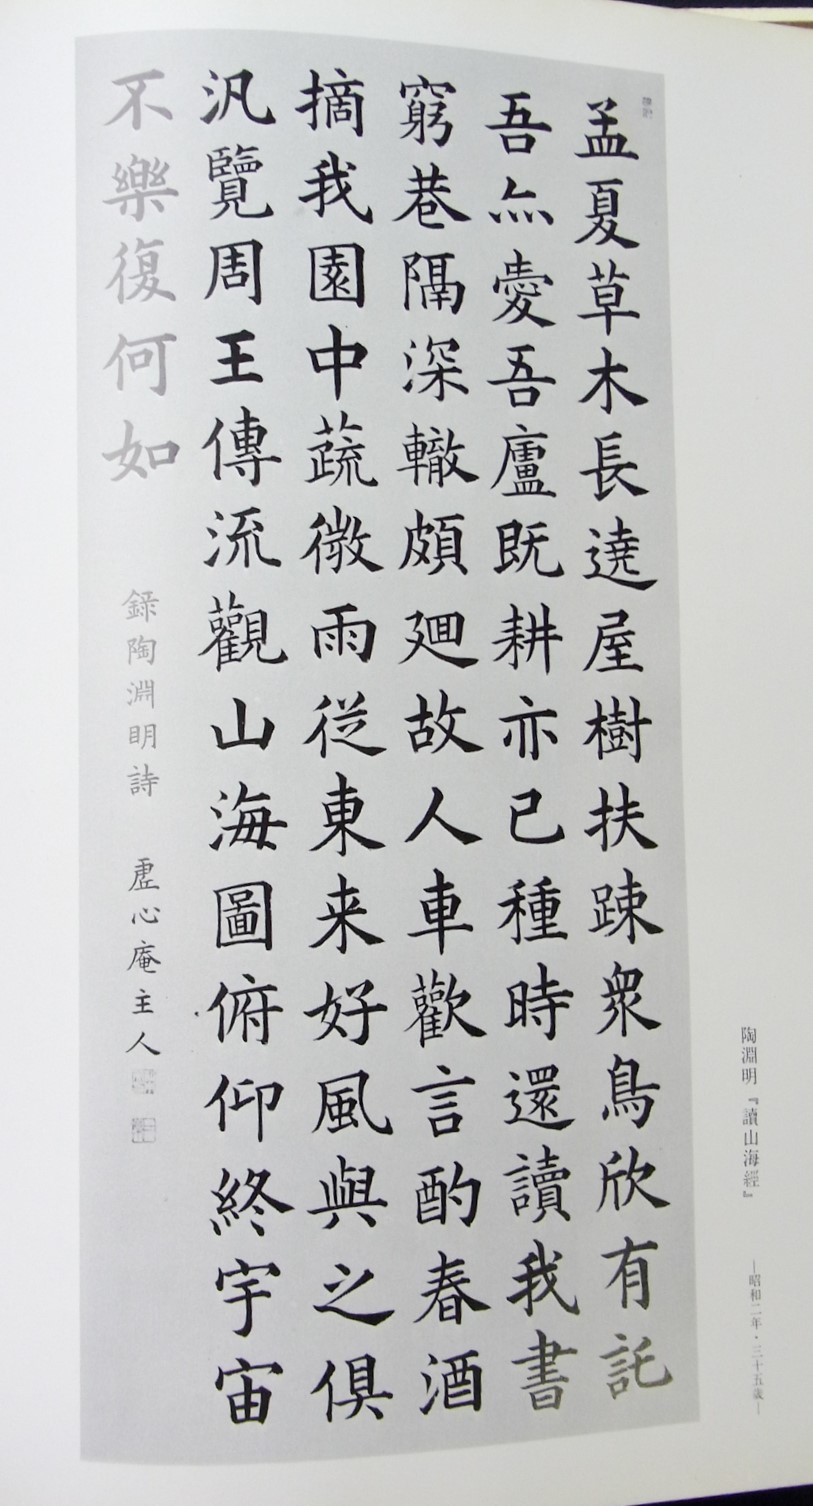 孟夏草木長遶屋樹扶踈衆鳥欣有託
吾亦愛吾廬既耕亦已種時還讀我書
窮巷隔深轍頗廻故人車歡言酌春酒
摘我園中蔬微雨従東来好風與之俱
汎覽周王傳流觀山海圖俯仰終宇宙
不樂復何如
録陶淵明詩 虚心庵主人
陶淵明『讀山海經』 ―昭和二年・三十五歳―